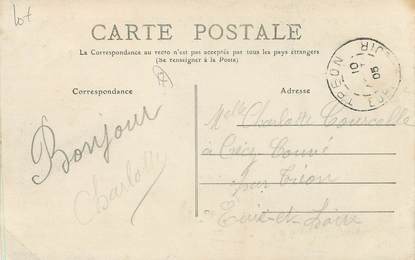 lot
CARTE POSTALE
La Correspondance au recto n'est pas acceptée par tous les pays étrangers
(Se renseigner à la Poste)
Correspondance
Adresse
Bonjour
Charlotte
Melle Charlotte
à Crécy Couvé
par
Eure-et-Loire